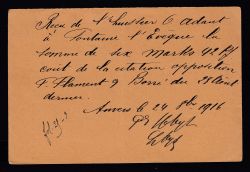 Recu de Mr l'huissier C Adant
à Fontaine l'Eveque la
somme de six Marks 42 Pf
cout de la citation opposition
F. Flament & Borré du 28 Aout
dernier.
Anvers le 24 8bre 1916